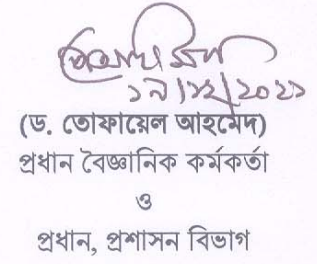 ১৯/১২/২০২১
(ড. তোফায়েল আহমেদ)
প্রধান বৈজ্ঞানিক কর্মকর্তা
ও
প্রধান, প্রশাসন বিভাগ